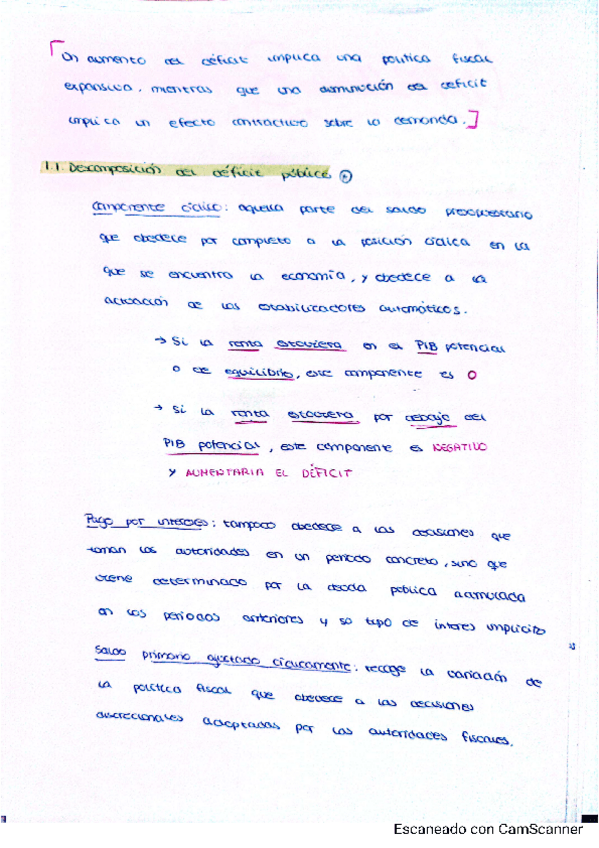 Un aumento del déficit implica una política fiscal
expansiva, mientras que una disminución del déficit
implica un efecto contractivo sobre la demanda.
1.1. Descomposición del déficit público
Componente cíclico: aquella parte del saldo presupuestario
que obedece por completo a la posición cíclica en la
que se encuentra la economía, y obedece a la
actuación de los estabilizadores automáticos.
→ Si la renta estuviera en el PIB potencial
o de equilibrio, este componente es 0
→ Si la renta estuviera por debajo del
PIB potencial, este componente es NEGATIVO
y AUMENTARIA EL DÉFICIT
Pago por intereses: tampoco obedece a las decisiones que
toman las autoridades en un periodo concreto, sino que
viene determinado por la deuda pública acumulada
en los periodos anteriores y su tipo de interes implícito
Saldo primario ajustado cíclicamente: recoge la variación de
la política fiscal que obedece a las decisiones
discrecionales adoptadas por las autoridades fiscales.
Escaneado con CamScanner